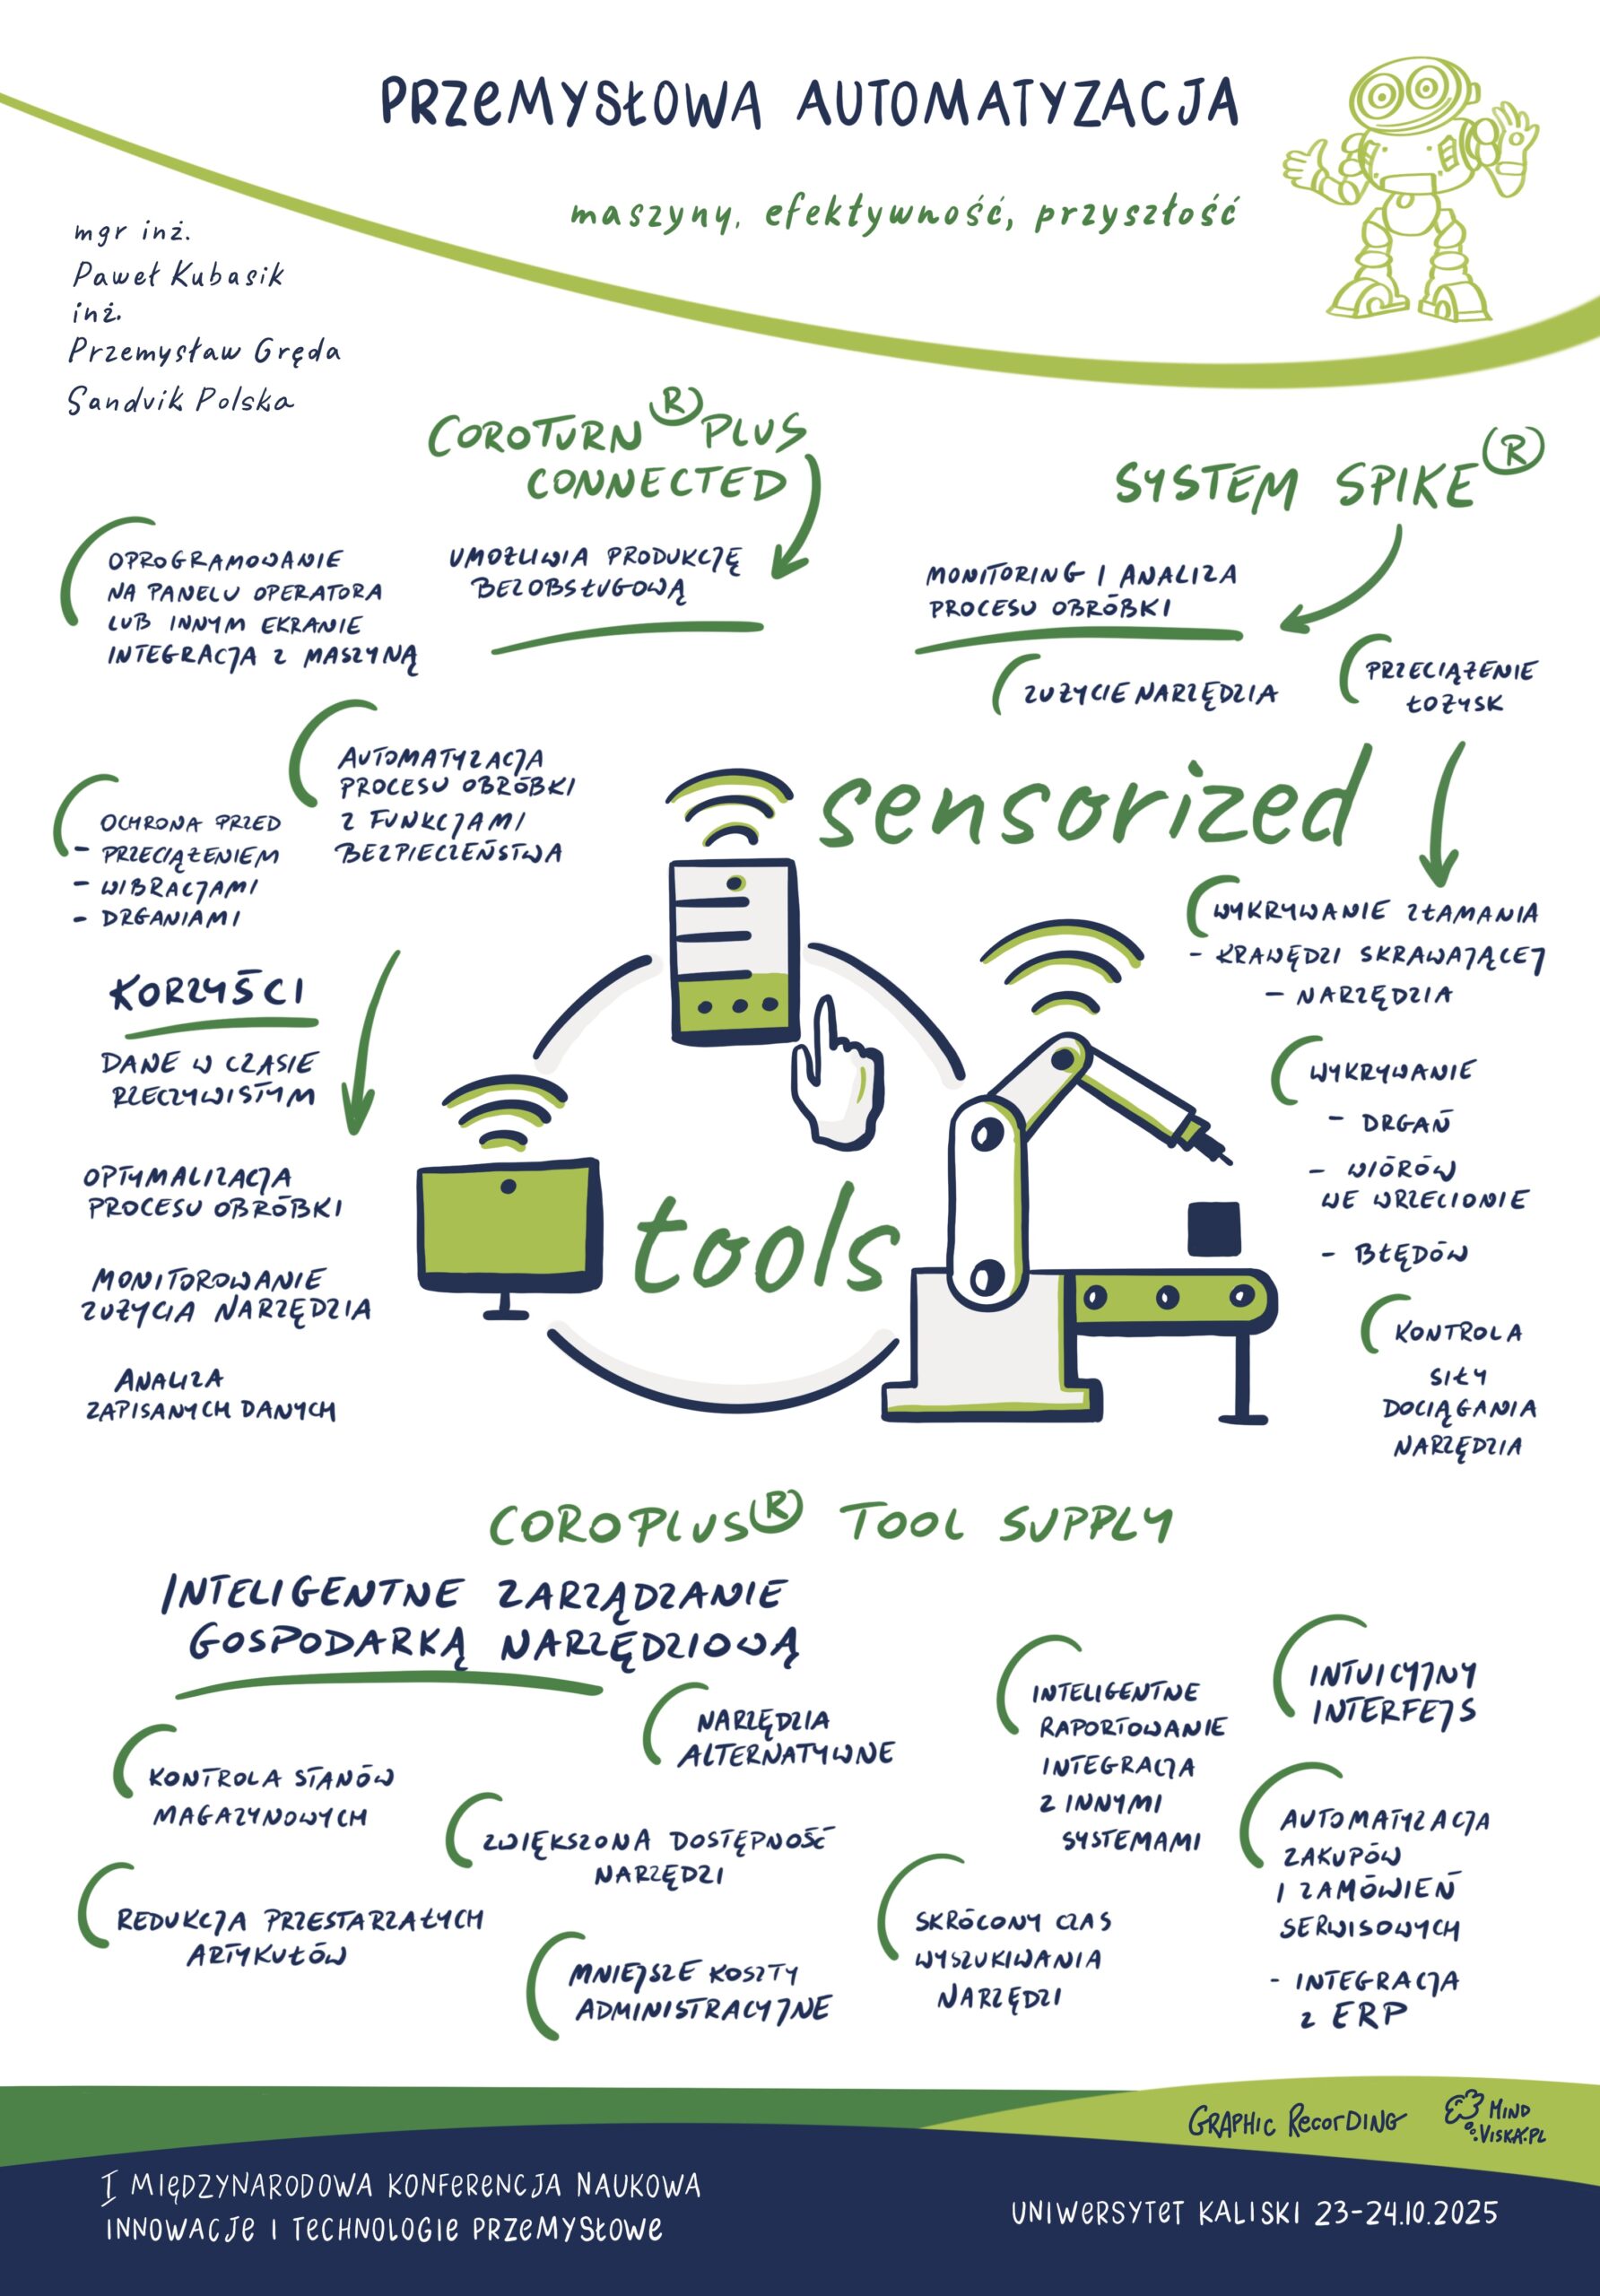 PRZEMYSŁOWA AUTOMATYZACJA
maszyny, efektywność, przyszłość
mgr inż.
Paweł Kubasik
inż.
Przemysław Gręda
Sandvik Polska
COROTURN ® PLUS
CONNECTED
UMOŻLIWIA PRODUKCJĘ
BEZOBSŁUGOWĄ
OPROGRAMOWANIE
NA PANELU OPERATORA
LUB INNYM EKRANIE
INTEGRACJA Z MASZYNĄ
AUTOMATYZACJA
PROCESU OBRÓBKI
Z FUNKCJAMI
BEZPIECZEŃSTWA
OCHRONA PRZED
- PRZECIĄŻENIEM
- WIBRACJAMI
- DRGANIAMI
KORZYŚCI
DANE W CZASIE
RZECZYWISTYM
OPTYMALIZACJA
PROCESU OBRÓBKI
MONITOROWANIE
ZUŻYCIA NARZĘDZIA
ANALIZA
ZAPISANYCH DANYCH
SYSTEM SPIKE ®
MONITORING I ANALIZA
PROCESU OBRÓBKI
ZUŻYCIE NARZĘDZIA
PRZECIĄŻENIE
ŁOŻYSK
sensorized
tools
WYKRYWANIE ZŁAMANIA
- KRAWĘDZI SKRAWAJĄCEJ
- NARZĘDZIA
WYKRYWANIE
- DRGAŃ
- WIÓRÓW
WE WRZECIONIE
- BŁĘDÓW
KONTROLA
SIŁY
DOCIĄGANIA
NARZĘDZIA
COROPLUS® TOOL SUPPLY
INTELIGENTNE ZARZĄDZANIE
GOSPODARKĄ NARZĘDZIOWĄ
KONTROLA STANÓW
MAGAZYNOWYCH
NARZĘDZIA
ALTERNATYWNE
ZWIĘKSZONA DOSTĘPNOŚĆ
NARZĘDZI
REDUKCJA PRZESTARZAŁYCH
ARTYKUŁÓW
MNIEJSZE KOSZTY
ADMINISTRACYJNE
INTELIGENTNE
RAPORTOWANIE
INTEGRACJA
Z INNYMI
SYSTEMAMI
SKRÓCONY CZAS
WYSZUKIWANIA
NARZĘDZI
INTUICYJNY
INTERFEJS
AUTOMATYZACJA
ZAKUPÓW
I ZAMÓWIEŃ
SERWISOWYCH
- INTEGRACJA
Z ERP
GRAPHIC RECORDING
MIND
VISKA.PL
I MIĘDZYNARODOWA KONFERENCJA NAUKOWA
INNOWACJE I TECHNOLOGIE PRZEMYSŁOWE
UNIWERSYTET KALISKI 23-24.10.2025